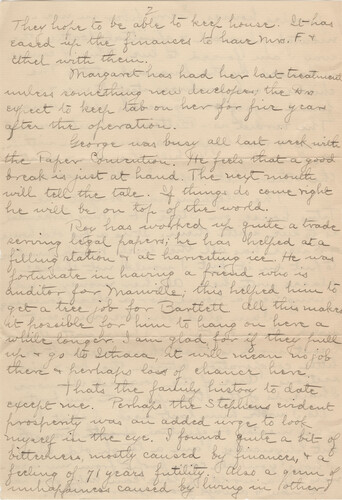 2
They hope to be able to keep house. It has
eased up the finances to have Mrs. F &
Ethel with them.
Margaret has had her last treatment
unless something new developes, the Drs
expect to keep tab on her for five years
after the operation.
George was busy all last week with
the Paper Convention. He feels that a good
break is just at hand. The next month
will tell the tale. If things do come right
he will be on top of the world.
Roy has worked up quite a trade
serving legal papers; he has helped at a
filling station & at harvesting ice. He was
fortunate in having a friend who is
auditor for Manville; this helped him to
get a tree job for Bartlett. All this makes
it possible for him to hang on here a
while longer. I am glad for if they pull
up & go to Ithaca, it will mean no job
there & perhaps loss of chance here.
Thats the family history to date
except me. Perhaps the Stephens evident
prosperity was an added urge to look
myself in the eye. I found quite a bit of
bitterness, mostly caused by finances, & a
feeling of 71 years futility. Also a germ of
unhappiness caused by living in (others)